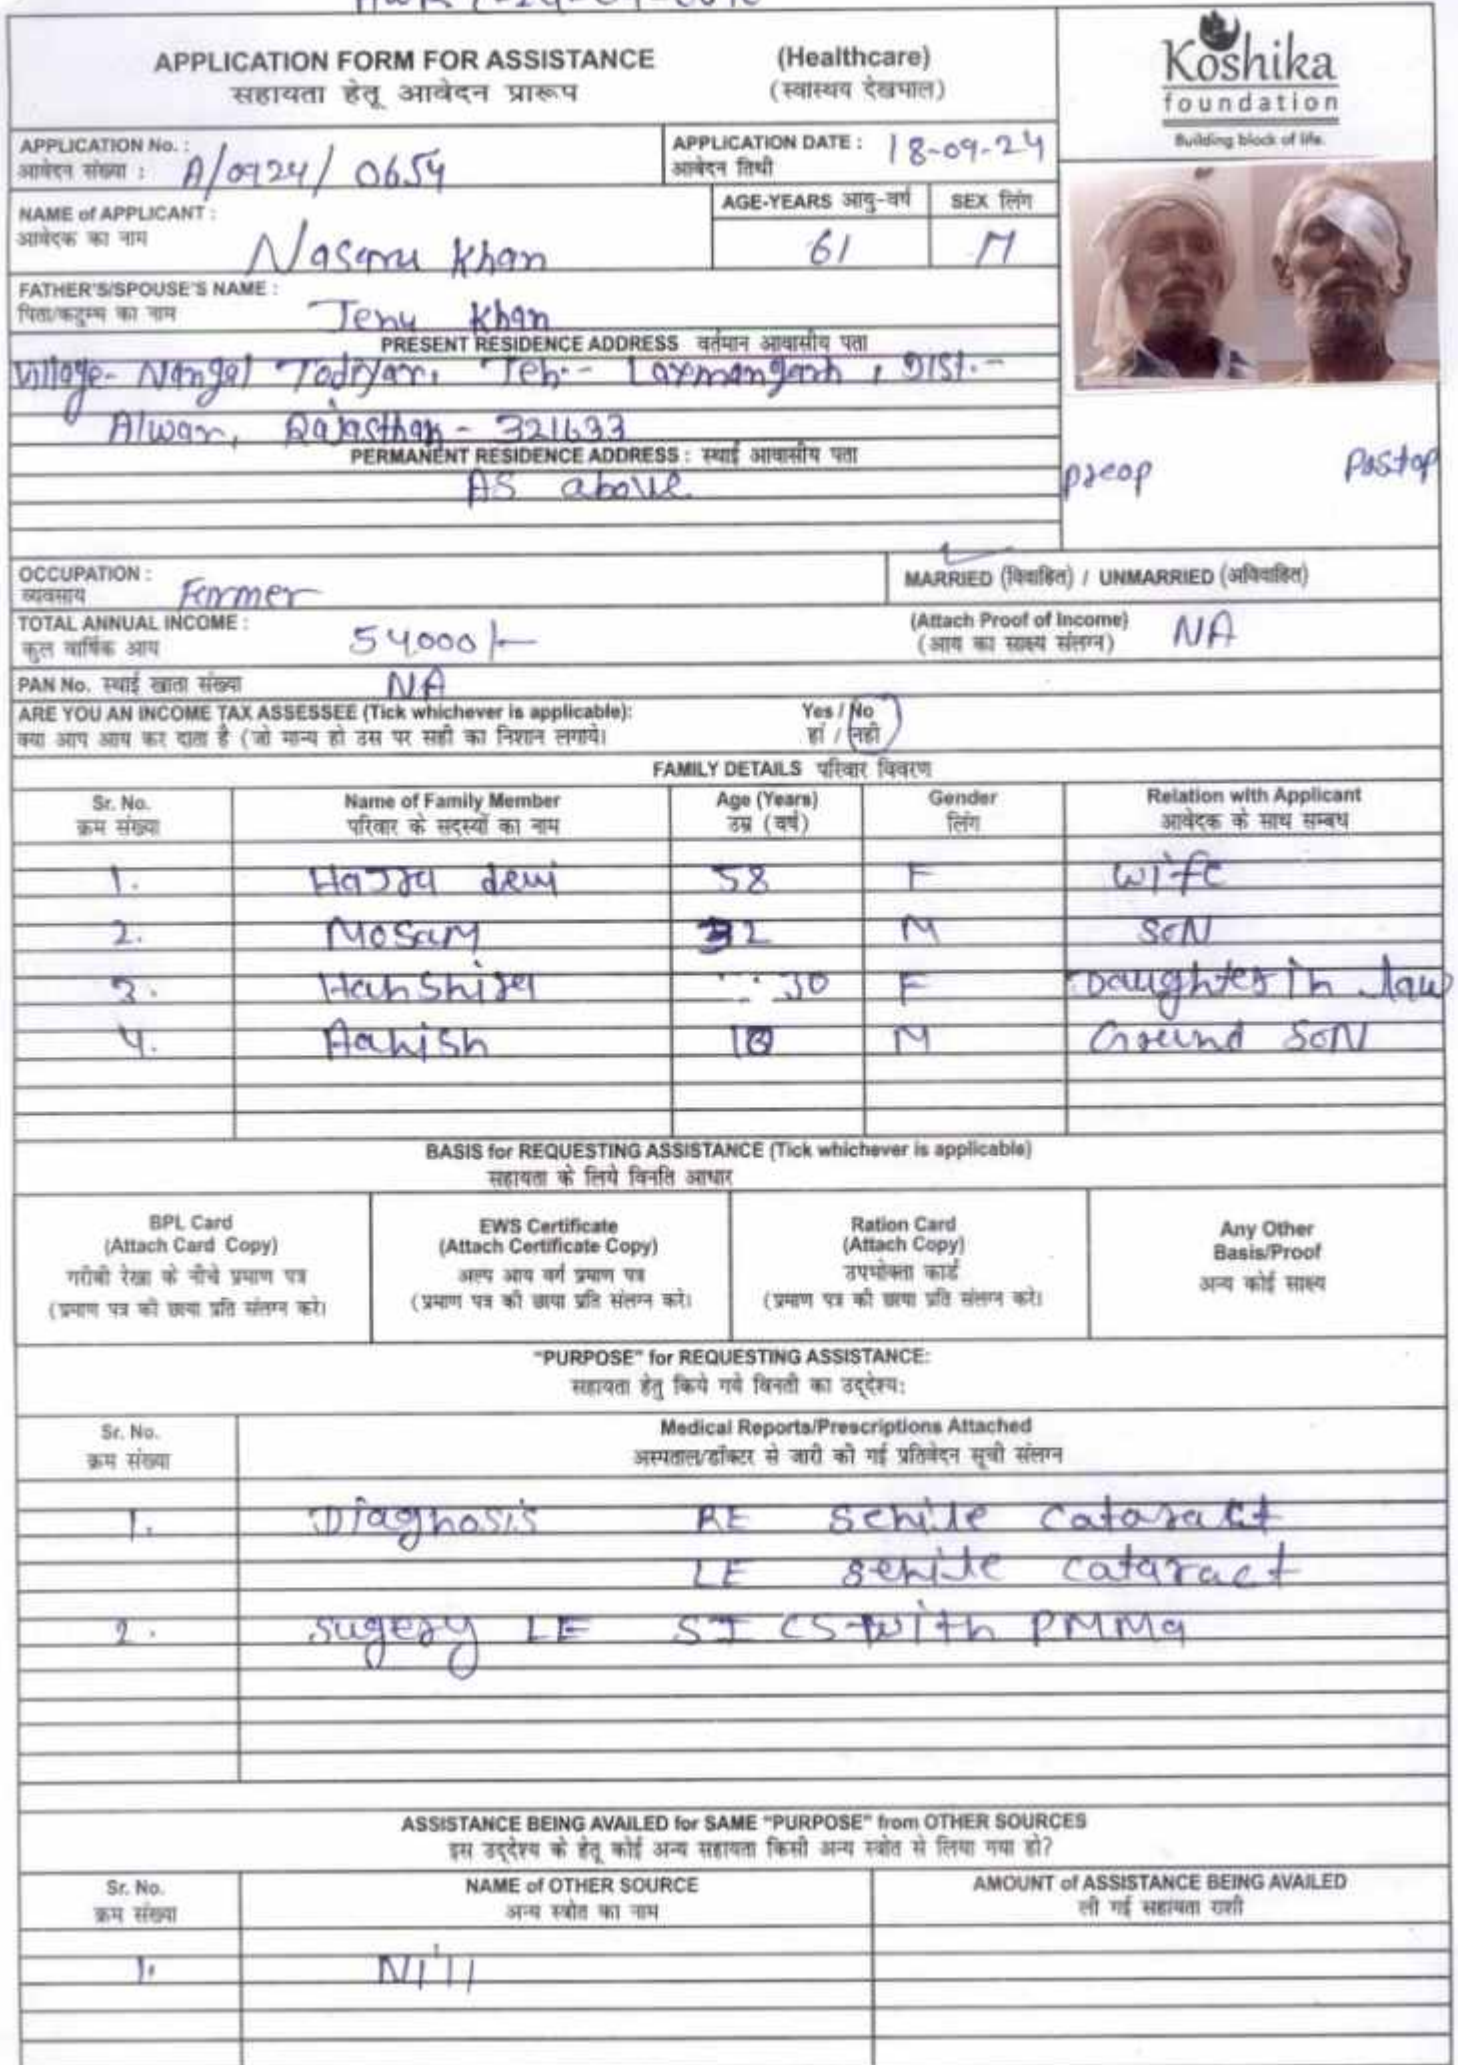 APPLICATION FORM FOR ASSISTANCE (Healthcare)
सहायता हेतू आवेदन प्रारूप (स्वास्थय देखभाल)
Koshika
foundation
Building block of life.
APPLICATION No. : A/0924/0654
आवेदन संख्या :
APPLICATION DATE : 18-09-24
आवेदन तिथी
NAME of APPLICANT :
आवेदक का नाम
Khan
AGE-YEARS आयु-वर्ष SEX लिंग
61 M
FATHER'S/SPOUSE'S NAME :
पिता/कटुम्ब का नाम
Jenu Khan
PRESENT RESIDENCE ADDRESS वर्तमान आवासीय पता
Village- Nangal Teh.- Laxmangarh, Dist.-
Alwar, Rajasthan - 321633
PERMANENT RESIDENCE ADDRESS : स्थाई आवासीय पता
AS above
preop Postop
OCCUPATION : Farmer
व्यवसाय
MARRIED (विवाहित) / UNMARRIED (अविवाहित)
TOTAL ANNUAL INCOME : 54000/-
कुल वार्षिक आय
(Attach Proof of Income) NA
(आय का साक्ष्य संलग्न)
PAN No. स्थाई खाता संख्या NA
ARE YOU AN INCOME TAX ASSESSEE (Tick whichever is applicable): Yes / No
क्या आप आय कर दाता है (जो मान्य हो उस पर सही का निशान लगाये। हां / नही
FAMILY DETAILS परिवार विवरण
Sr. No. Name of Family Member Age (Years) Gender Relation with Applicant
क्रम संख्या परिवार के सदस्यों का नाम उम्र (वर्ष) लिंग आवेदक के साथ सम्बध
1. devi 58 F Wife
2. Mosam 32 M SON
3. 30 F Daughter in law
4. M Ground SON
BASIS for REQUESTING ASSISTANCE (Tick whichever is applicable)
सहायता के लिये विनति आधार
BPL Card
(Attach Card Copy)
गरीबी रेखा के नीचे प्रमाण पत्र
(प्रमाण पत्र की छाया प्रति संलग्न करे।
EWS Certificate
(Attach Certificate Copy)
अल्प आय वर्ग प्रमाण पत्र
(प्रमाण पत्र की छाया प्रति संलग्न करे।
Ration Card
(Attach Copy)
उपभोक्ता कार्ड
(प्रमाण पत्र की छाया प्रति संलग्न करे।
Any Other
Basis/Proof
अन्य कोई साक्ष्य
"PURPOSE" for REQUESTING ASSISTANCE:
सहायता हेतु किये गये विनती का उद्देश्य:
Sr. No. Medical Reports/Prescriptions Attached
क्रम संख्या अस्पताल/डॉक्टर से जारी की गई प्रतिवेदन सूची संलग्न
1. Diagnosis RE Senile Cataract
LE senile cataract
2. Sugery LE SICS with PMMA
ASSISTANCE BEING AVAILED for SAME "PURPOSE" from OTHER SOURCES
इस उद्देश्य के हेतू कोई अन्य सहायता किसी अन्य स्त्रोत से लिया गया हो?
Sr. No. NAME of OTHER SOURCE AMOUNT of ASSISTANCE BEING AVAILED
क्रम संख्या अन्य स्त्रोत का नाम ली गई सहायता राशी
1. Nill